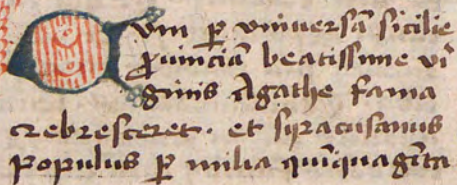 Cum ꝑ vniuersā sicilie
ꝓuinciā beatissime vi
ginis Agathe fama
crebresceret. et syracusanus
populus ꝑ milia quīquagīta